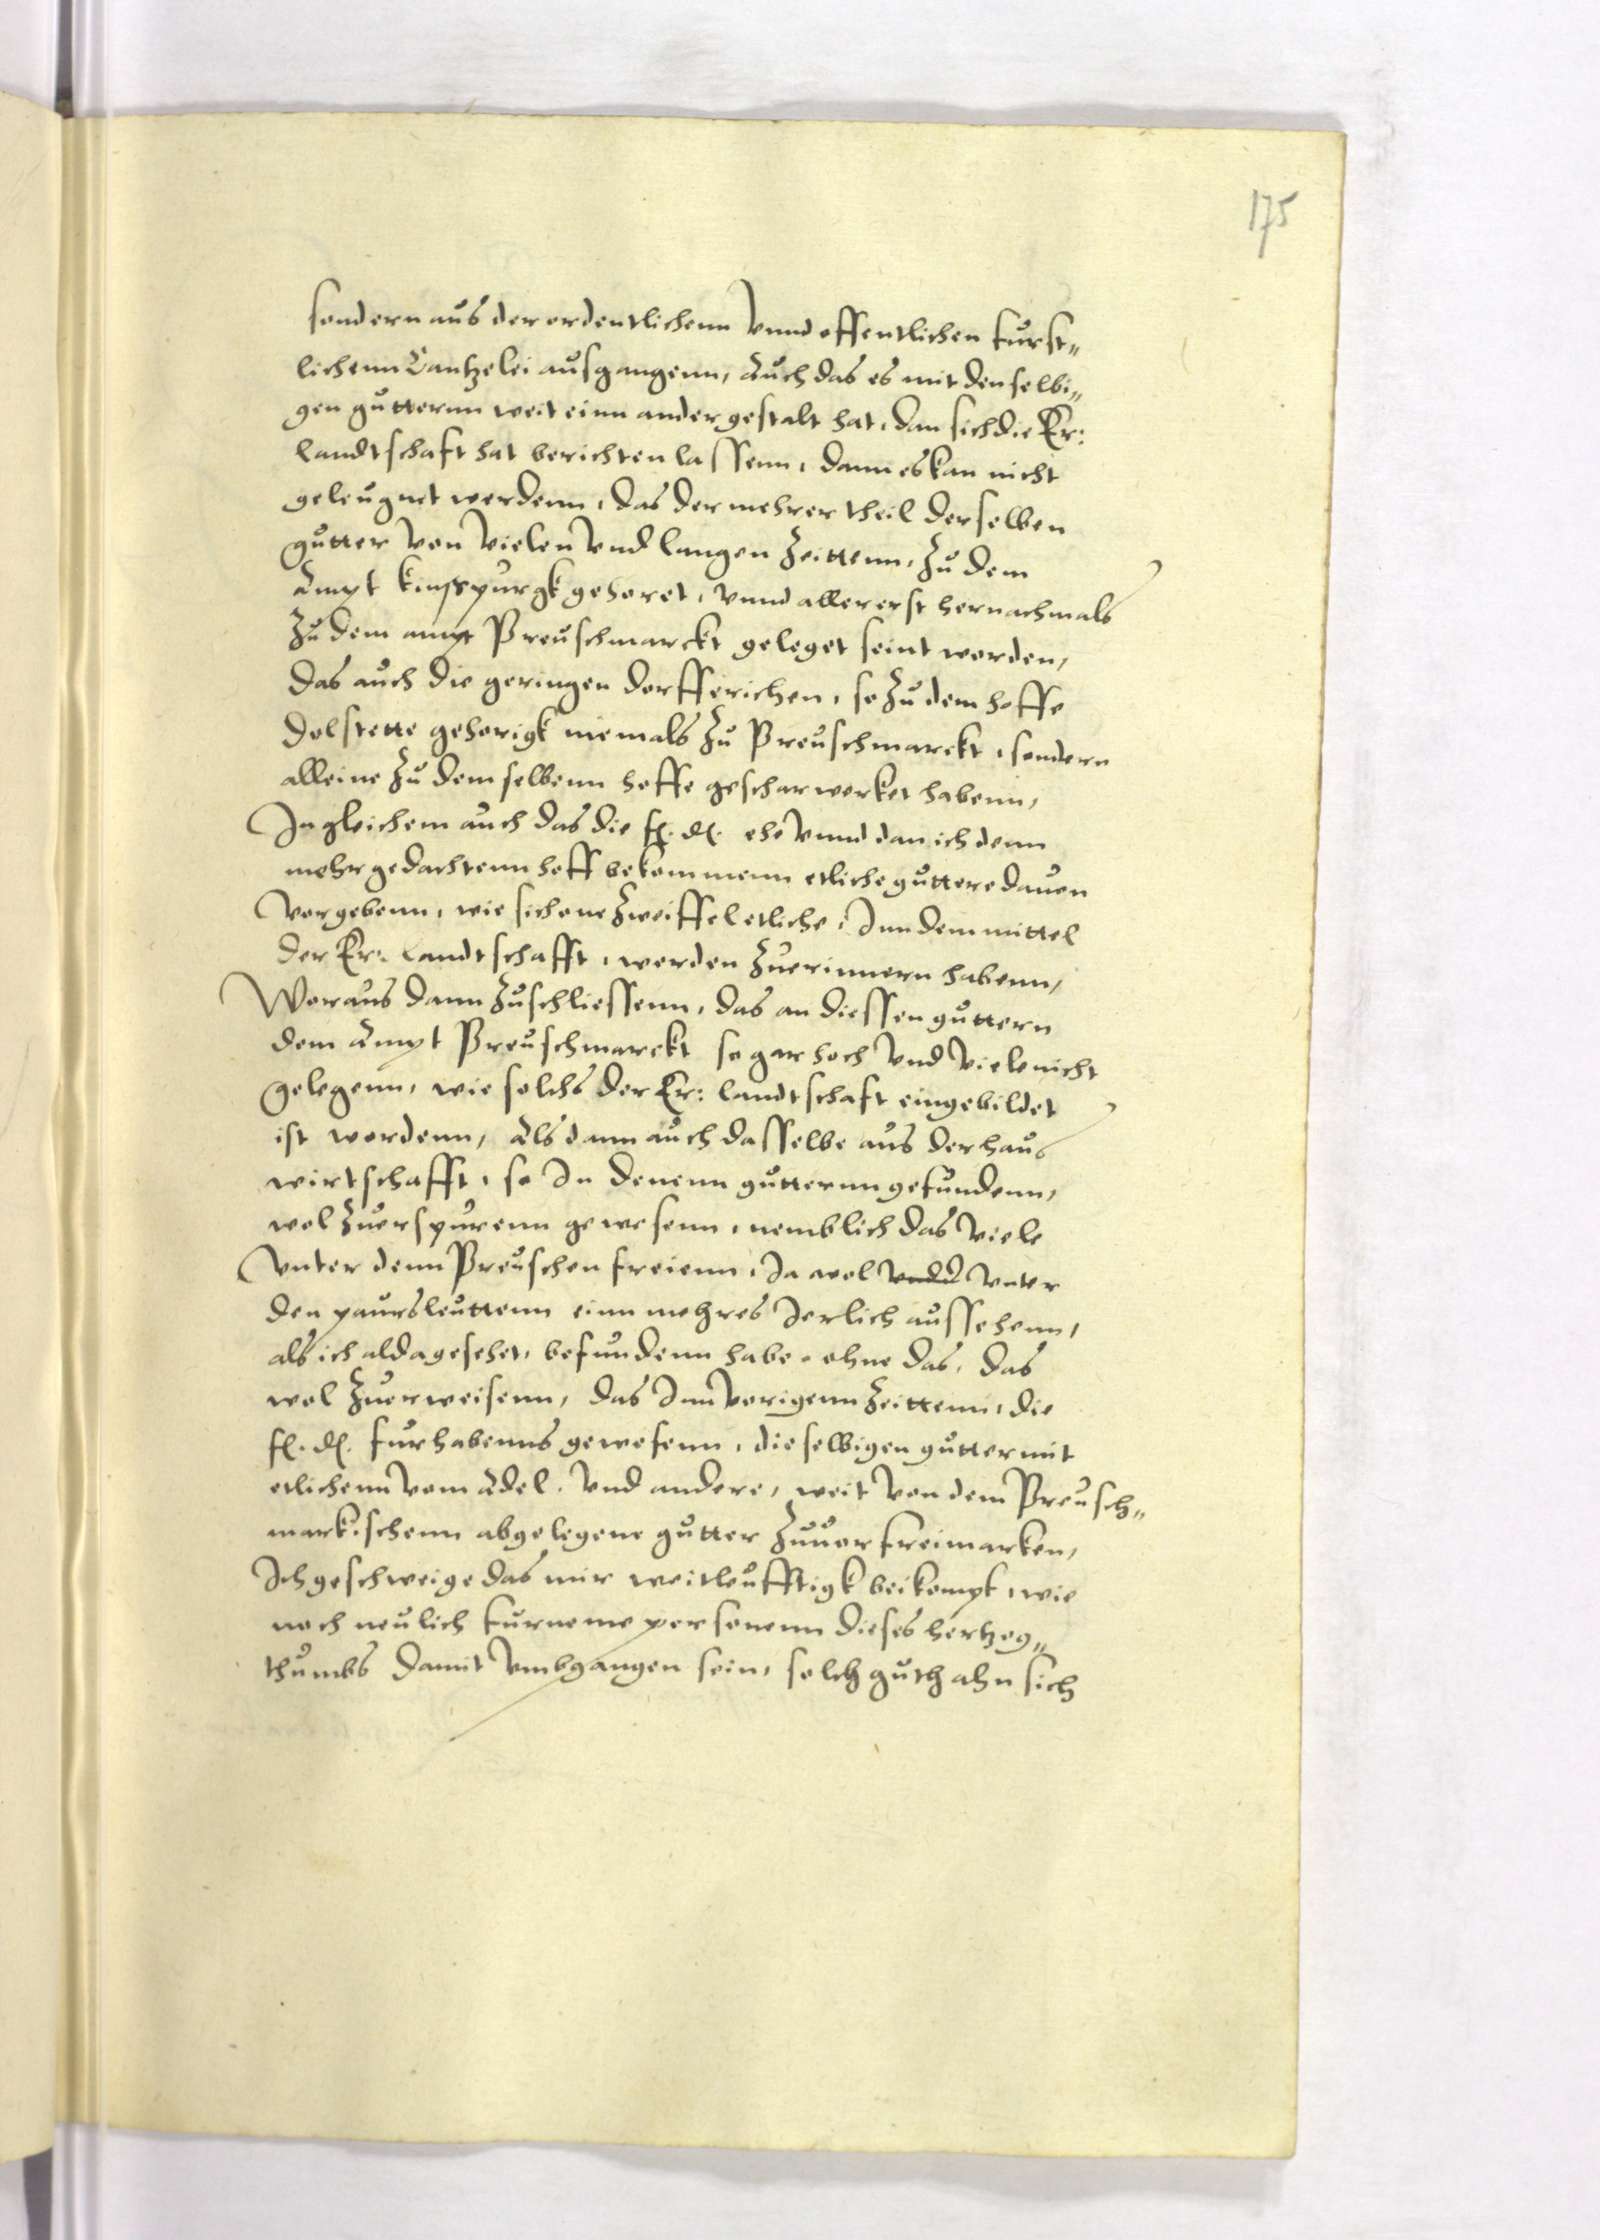 175
sondern aus der ordentlichenn vnnd offentlichen furst„
lichenn Cantzelei ausgangenn, Auch das es mit denselbi„
gen gutternn weit einn ander gestalt hat, dan sich die Er:
Landtschaft hat berichten lassenn, dann es kan nicht
geleugnet werdenn, das der mehrer theil derselben
gutter von vielen vnd langen Zeittenn, Zu dem
Ampt kinspurgk gehoret, vnnd allererst hernachmals
Zu dem ampt Preuschmarckt geleget seint worden,
das auch die geringen dorfferichen, so Zu dem hoffe
dolstette gehorigk niemals Zu Preuschmarckt, sondern
alleine Zu demselbenn hoffe gescharwerket habenn,
In gleichem auch das die f. d. ehe vnnd dan ich denn
mehrgedachtenn hoff bekommenn etliche guttere dauon
vorgebenn, wie sich one Zweiffel etliche, Inn dem mittel
der Er: Landtschafft, werden Zuerinnern habenn,
Woraus dann Zuschliessenn, das an diessen guttern
dem Ampt Preuschmarckt so gar hoch vnd viele nicht
gelegenn, wie solchs der Er: landtschaft eingebildet
ist wordenn, Als dann auch dasselbe aus der haus
wirtschafft, so In denenn gutternn gefundenn,
wol Zuerspurenn gewesenn, nemblich das viele
vnter denn Preuschen freienn, Ja wol vndd vnter
den paursleuttenn einn mehres Jerlich aussehenn,
als ich alda gesehet, befundenn habe, ohne das, das
wol Zuerweisenn, das Inn vorigenn Zeittenn, die
f. d. furhabenns gewesenn, dieselbigen gutter mit
etlichenn vom Adel, vnd andere, weit von dem Preusch„
markischenn abgelegene gutter Zuuorfreimarken,
Ich geschweige das mir weitleufftigk beikompt, wie
noch neulich furneme personenn dieses hertzog„
thumbs damit vmbgangen sein, solch guth ahn sich